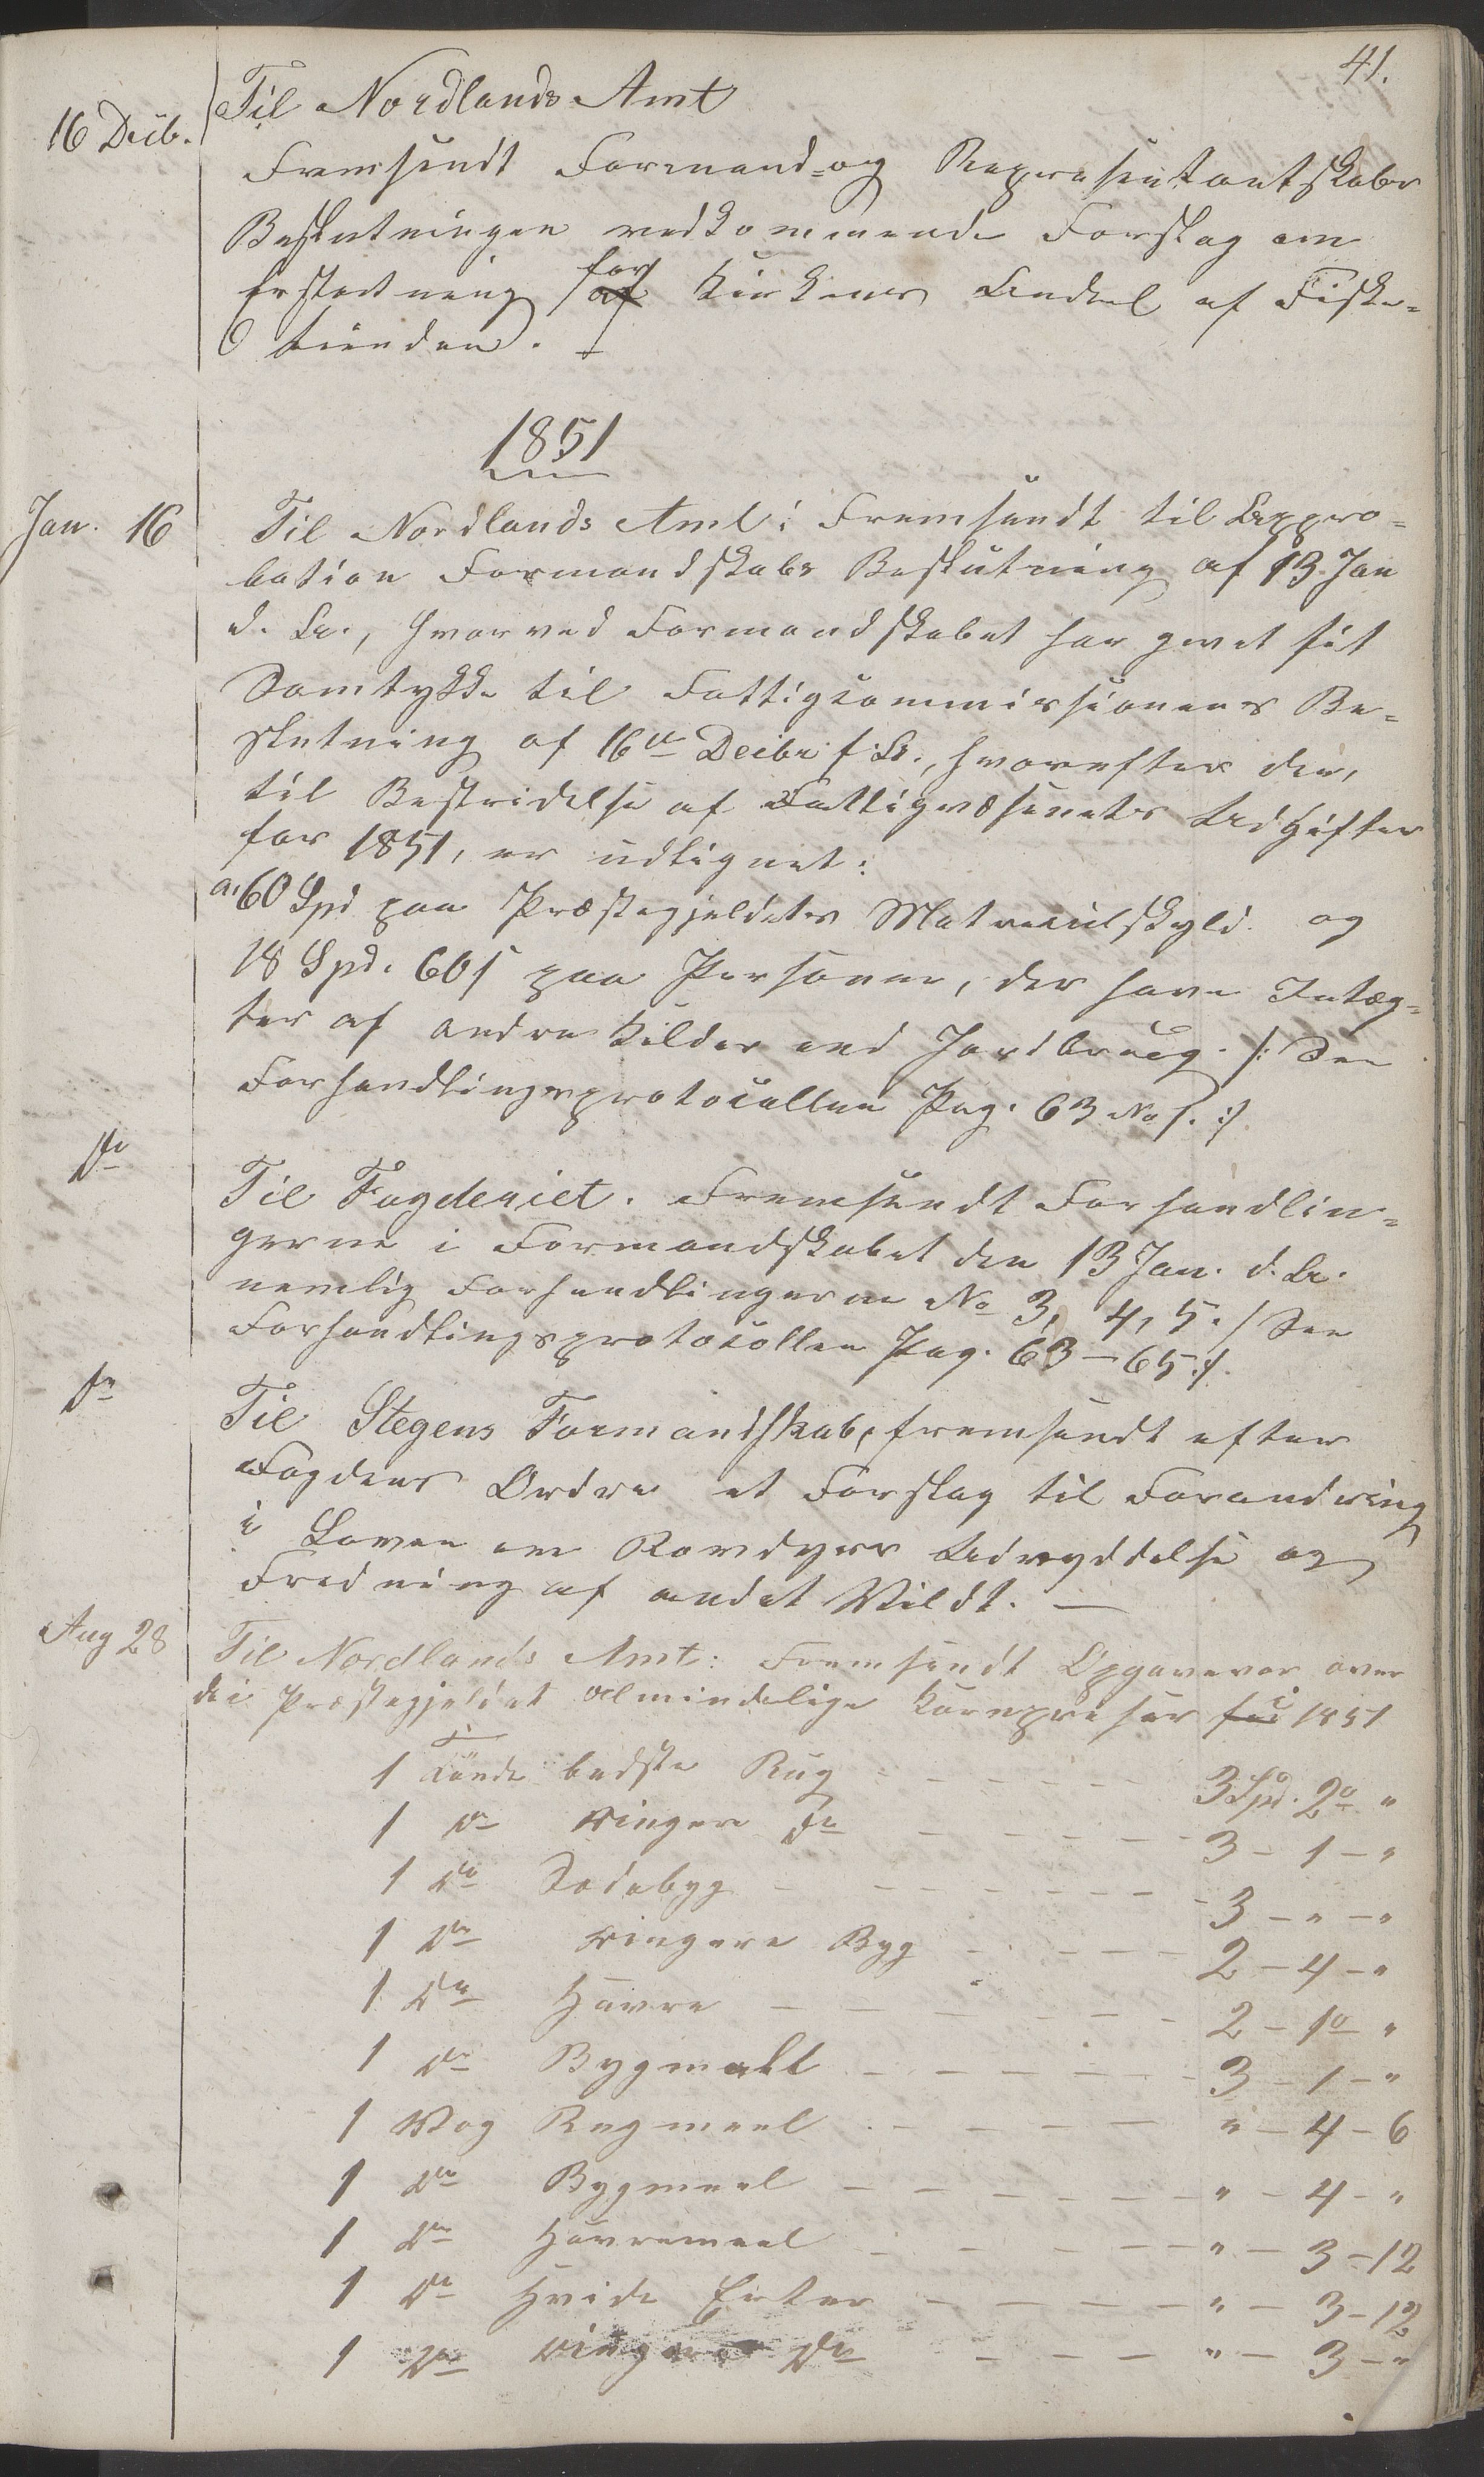 41.
16 Decb. Til Nordlands Amt
Fremsendt Formand- og Repræsentantskabs
Beslutningen vedkommende Forslag om
Erstatning af for Kirkens Andeel af Fiske-
tienden.
1851
Jan. 16 Til Nordlands Amt: Fremsendt til Appro-
bation Formandskabs Beslutning af 13 Jan
d. A., hvorved Formandskabet har givet sit
Samtykke til Fattigcommissionens Be-
slutning af 16de Decbr f. A., hvorefter der,
til Bestridelse af Fattigvæsenets Udgifter
for 1851, er udlignet:
a, 60 Spd paa Præstegjeldets Matriculskyld og
18 Spd. 60 s paa Personer, der have Indtæg-
ter af andre Kilder end Jordbrug. /: See
Forhandlingsprotocollen Pag. 63 No 1. :/
do Til Fogderiet. Fremsendt Forhandlin-
gerne i Formandskabet den 13 Jan. d. A.
nemlig Forhandlingerne No 3, 4, 5. / See
Forhandlingsprotocollen Pag. 63 - 65 :/.
do Til Stegens Formandskab, fremsendt efter
Fogdens Ordre et Forslag til Forandring
i Loven om Rovdyrs Udryddelse og
Fredning af andet Vildt. —
Aug 28 Til Nordlands Amt: Fremsendt Opgaver over
de i Præstegjeldet almindelige Kornpriser for i 1851
1 Tønde bedste Rug - - - 3 Spd. 2 o "
1 do ringere do - - - 3 - 1 - "
1 do Sædebyg - - - 3 - " - "
1 do ringere Byg - - - 2 - 4 - "
1 do Havre - - - 2 - 1 o "
1 do Bygmalt - - - 3 - 1 - "
1 Vog Rugmeel - - - " - 4 - 6
1 do Bygmeel - - - " - 4 - "
1 do Havremeel - - - " - 3 - 12
1 do Hvide Erter - - - " - 3 - 12
1 do ringere do - - - " - 3 - "